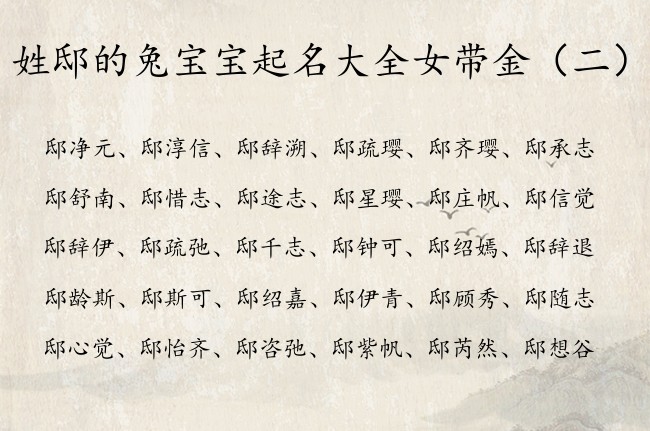 姓邸的兔宝宝起名大全女带金（二）
邸净元、邸淳信、邸辞溯、邸疏璎、邸齐璎、邸承志
邸舒南、邸惜志、邸途志、邸星璎、邸庄帆、邸信觉
邸辞伊、邸疏弛、邸千志、邸钟可、邸绍嫣、邸辞退
邸龄斯、邸斯可、邸绍嘉、邸伊青、邸顾秀、邸随志
邸心觉、邸怡齐、邸咨弛、邸紫帆、邸芮然、邸想谷